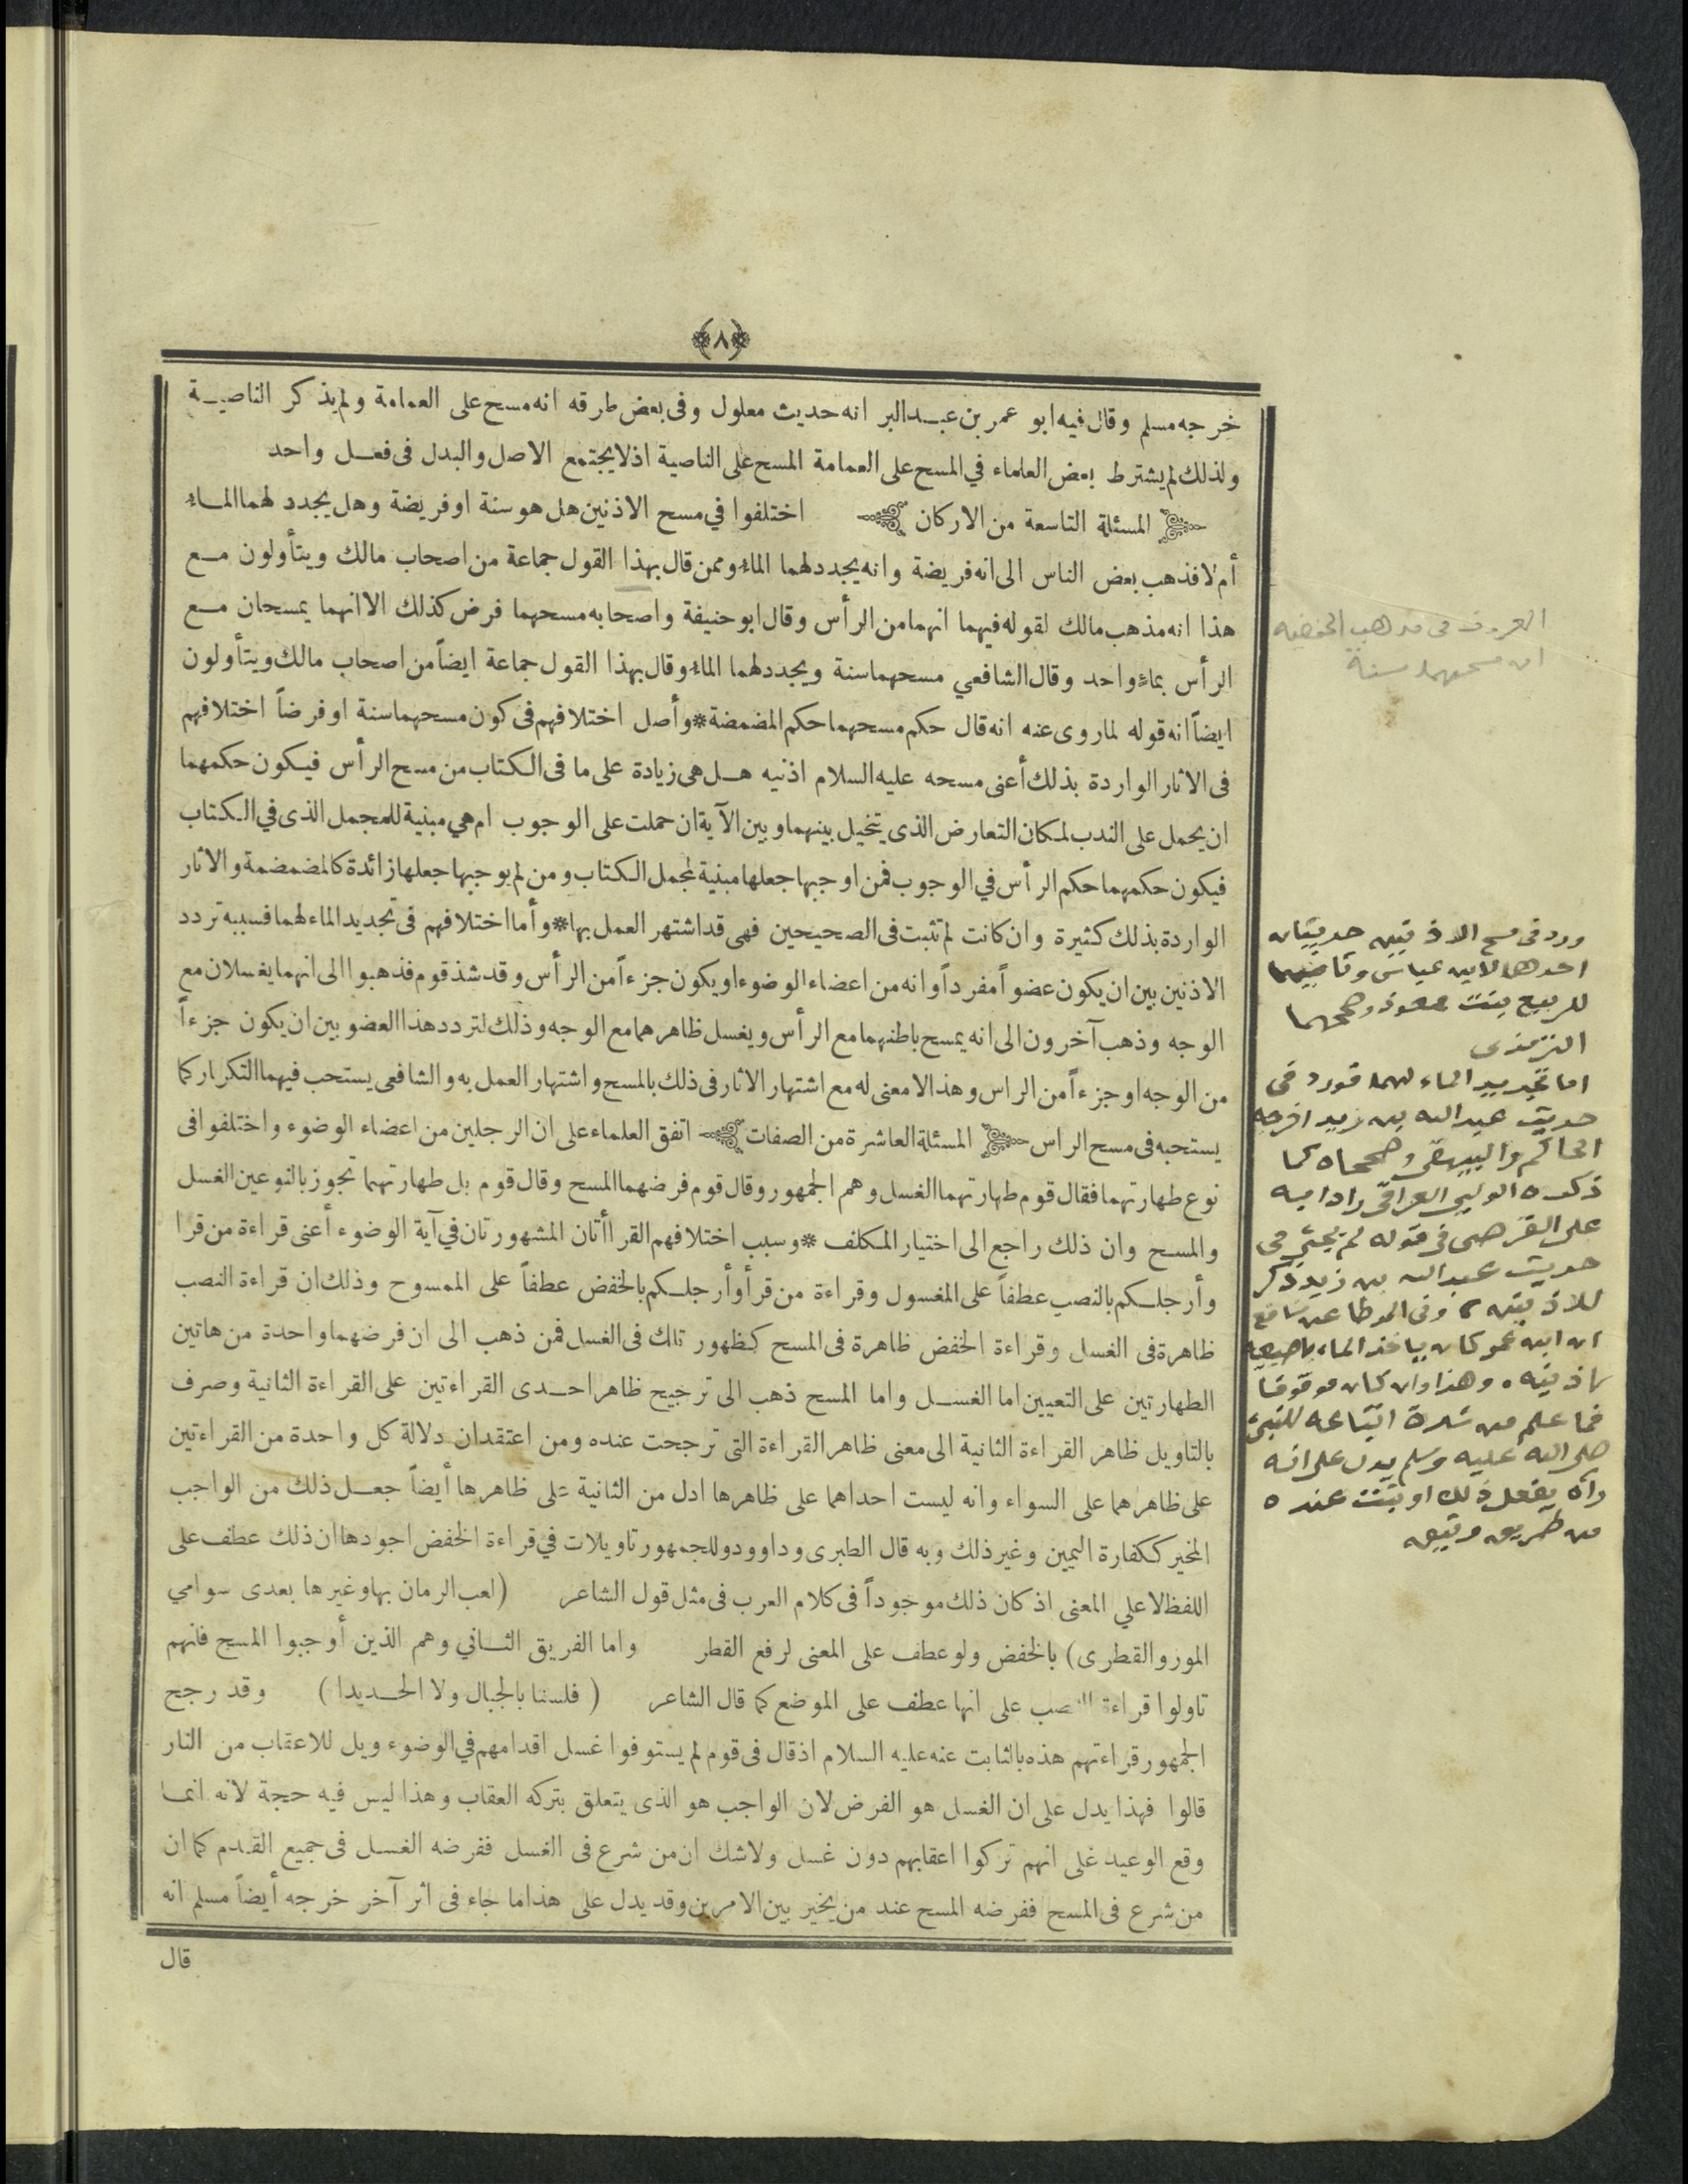 ﴿٨﴾
خرجه مسلم وقال فيه ابو عمر بن عبد البر انه حديث معلول وفى بعض طرقه انه مسح على العمامة ولم يذكر الناصية
ولذلك لم يشترط بعض العلماء في المسح على العمامة المسح على الناصية اذ لا يجتمع الاصل والبدل فى فعل واحد
المسئلة التاسعة من الاركان اختلفوا في مسح الاذنين هل هو سنة او فريضة وهل يجدد لهما الماء
أم لا فذهب بعض الناس الى انه فريضة وانه يجدد لهما الماء وممن قال بهذا القول جماعة من اصحاب مالك ويتأولون مع
هذا انه مذهب مالك لقوله فيهما انهما من الرأس وقال ابو حنيفة واصحابه مسحهما فرض كذلك الا انهما يمسحان مع
الرأس بماء واحد وقال الشافعي مسحهما سنة ويجدد لهما الماء وقال بهذا القول جماعة ايضاً من اصحاب مالك ويتأولون
ايضاً انه قوله لما روى عنه انه قال حكم مسحهما حكم المضمضة * وأصل اختلافهم فى كون مسحهما سنة او فرضاً اختلافهم
فى الاثار الواردة بذلك أعنى مسحه عليه السلام اذنيه هل هى زيادة على ما فى الكتاب من مسح الرأس فيكون حكمهما
ان يحمل على الندب لمكان التعارض الذى يتخيل بينهما وبين الآية ان حملت على الوجوب ام هي مبنية للمجمل الذى في الكتاب
فيكون حكمهما حكم الرأس في الوجوب فمن اوجبها جعلها مبنية لمجمل الكتاب ومن لم يوجبها جعلها زائدة كالمضمضة والاثار
الواردة بذلك كثيرة وان كانت لم تثبت فى الصحيحين فهى قد اشتهر العمل بها * وأما اختلافهم فى تجديد الماء لهما فسببه تردد
الاذنين بين ان يكون عضواً مفرداً وانه من اعضاء الوضوء او يكون جزءاً من الرأس وقد شذ قوم فذهبوا الى انهما يغسلان مع
الوجه وذهب آخرون الى انه يمسح باطنهما مع الرأس ويغسل ظاهرهما مع الوجه وذلك لتردد هذا العضو بين ان يكون جزءاً
من الوجه او جزءاً من الراس وهذا لا معنى له مع اشتهار الاثار فى ذلك بالمسح واشتهار العمل به والشافعى يستحب فيهما التكرار كما
يستحبه فى مسح الراس المسئلة العاشرة من الصفات اتفق العلماء على ان الرجلين من اعضاء الوضوء واختلفوا فى
نوع طهارتهما فقال قوم طهارتهما الغسل وهم الجمهور وقال قوم فرضهما المسح وقال قوم بل طهارتهما تجوز بالنوعين الغسل
والمسح وان ذلك راجع الى اختيار المكلف * وسبب اختلافهم القراأتان المشهورتان في آية الوضوء أعنى قراءة من قرا
وأرجلكم بالنصب عطفاً على المغسول وقراءة من قرأ وأرجلكم بالخفض عطفاً على الممسوح وذلك ان قراءة النصب
ظاهرة فى الغسل وقراءة الخفض ظاهرة فى المسح كظهور تلك فى الغسل فمن ذهب الى ان فرضهما واحدة من هاتين
الطهارتين على التعيين اما الغسل واما المسح ذهب الى ترجيح ظاهر احدى القراءتين على القراءة الثانية وصرف
بالتاويل ظاهر القراءة الثانية الى معنى ظاهر القراءة التى ترجحت عنده ومن اعتقد ان دلالة كل واحدة من القراءتين
على ظاهرهما على السواء وانه ليست احداهما على ظاهرها ادل من الثانية على ظاهرها أيضاً جعل ذلك من الواجب
المخير ككفارة اليمين وغير ذلك وبه قال الطبرى وداوود وللجمهور تاويلات في قراءة الخفض اجودها ان ذلك عطف على
اللفظ لا علي المعنى اذ كان ذلك موجوداً فى كلام العرب فى مثل قول الشاعر (لعب الزمان بها وغيرها بعدى سوامي
المور والقطرى) بالخفض ولو عطف على المعنى لرفع القطر واما الفريق الثاني وهم الذين أوجبوا المسح فانهم
تاولوا قراءة النصب على انها عطف على الموضع كما قال الشاعر (فلسنا بالجبال ولا الحديدا) وقد رجح
الجمهور قراءتهم هذه بالثابت عنه عليه السلام اذ قال فى قوم لم يستوفوا غسل اقدامهم في الوضوء ويل للاعقاب من النار
قالوا فهذا يدل على ان الغسل هو الفرض لان الواجب هو الذى يتعلق بتركه العقاب وهذا ليس فيه حجة لانه انما
وقع الوعيد على انهم تركوا اعقابهم دون غسل ولا شك ان من شرع فى الغسل ففرضه الغسل فى جميع القدم كما ان
من شرع فى المسح ففرضه المسح عند من يخير بين الامرين وقد يدل على هذا ما جاء فى اثر آخر خرجه أيضاً مسلم انه
قال
المعروف فى مذهب الحنفيه
ان مسحهما سنة
ورد فى مسح الاذنين حديثان
احدهما لابن عباس وثانيهما
للربيع بنت معوذ وصححهما
الترمذى
اما تجديد الماء لهما فورد فى
حديث عبد الله بن زيد اخرجه
الحاكم والبيهقى وصححاه كما
ذكره الولي العراقى رادا به
على القرطبى فى قوله لم يجئ فى
حديث عبد الله بن زيد ذكر
للاذنين، وفى الموطا عن نافع
ان ابن عمر كان ياخذ الماء باصبعيه
لاذنيه. وهذا وان كان موقوفا
فما علم من شدة اتباعه للنبى
صلى الله عليه وسلم يدل على انه
رآه يفعل ذلك او ثبت عنده
من طريق